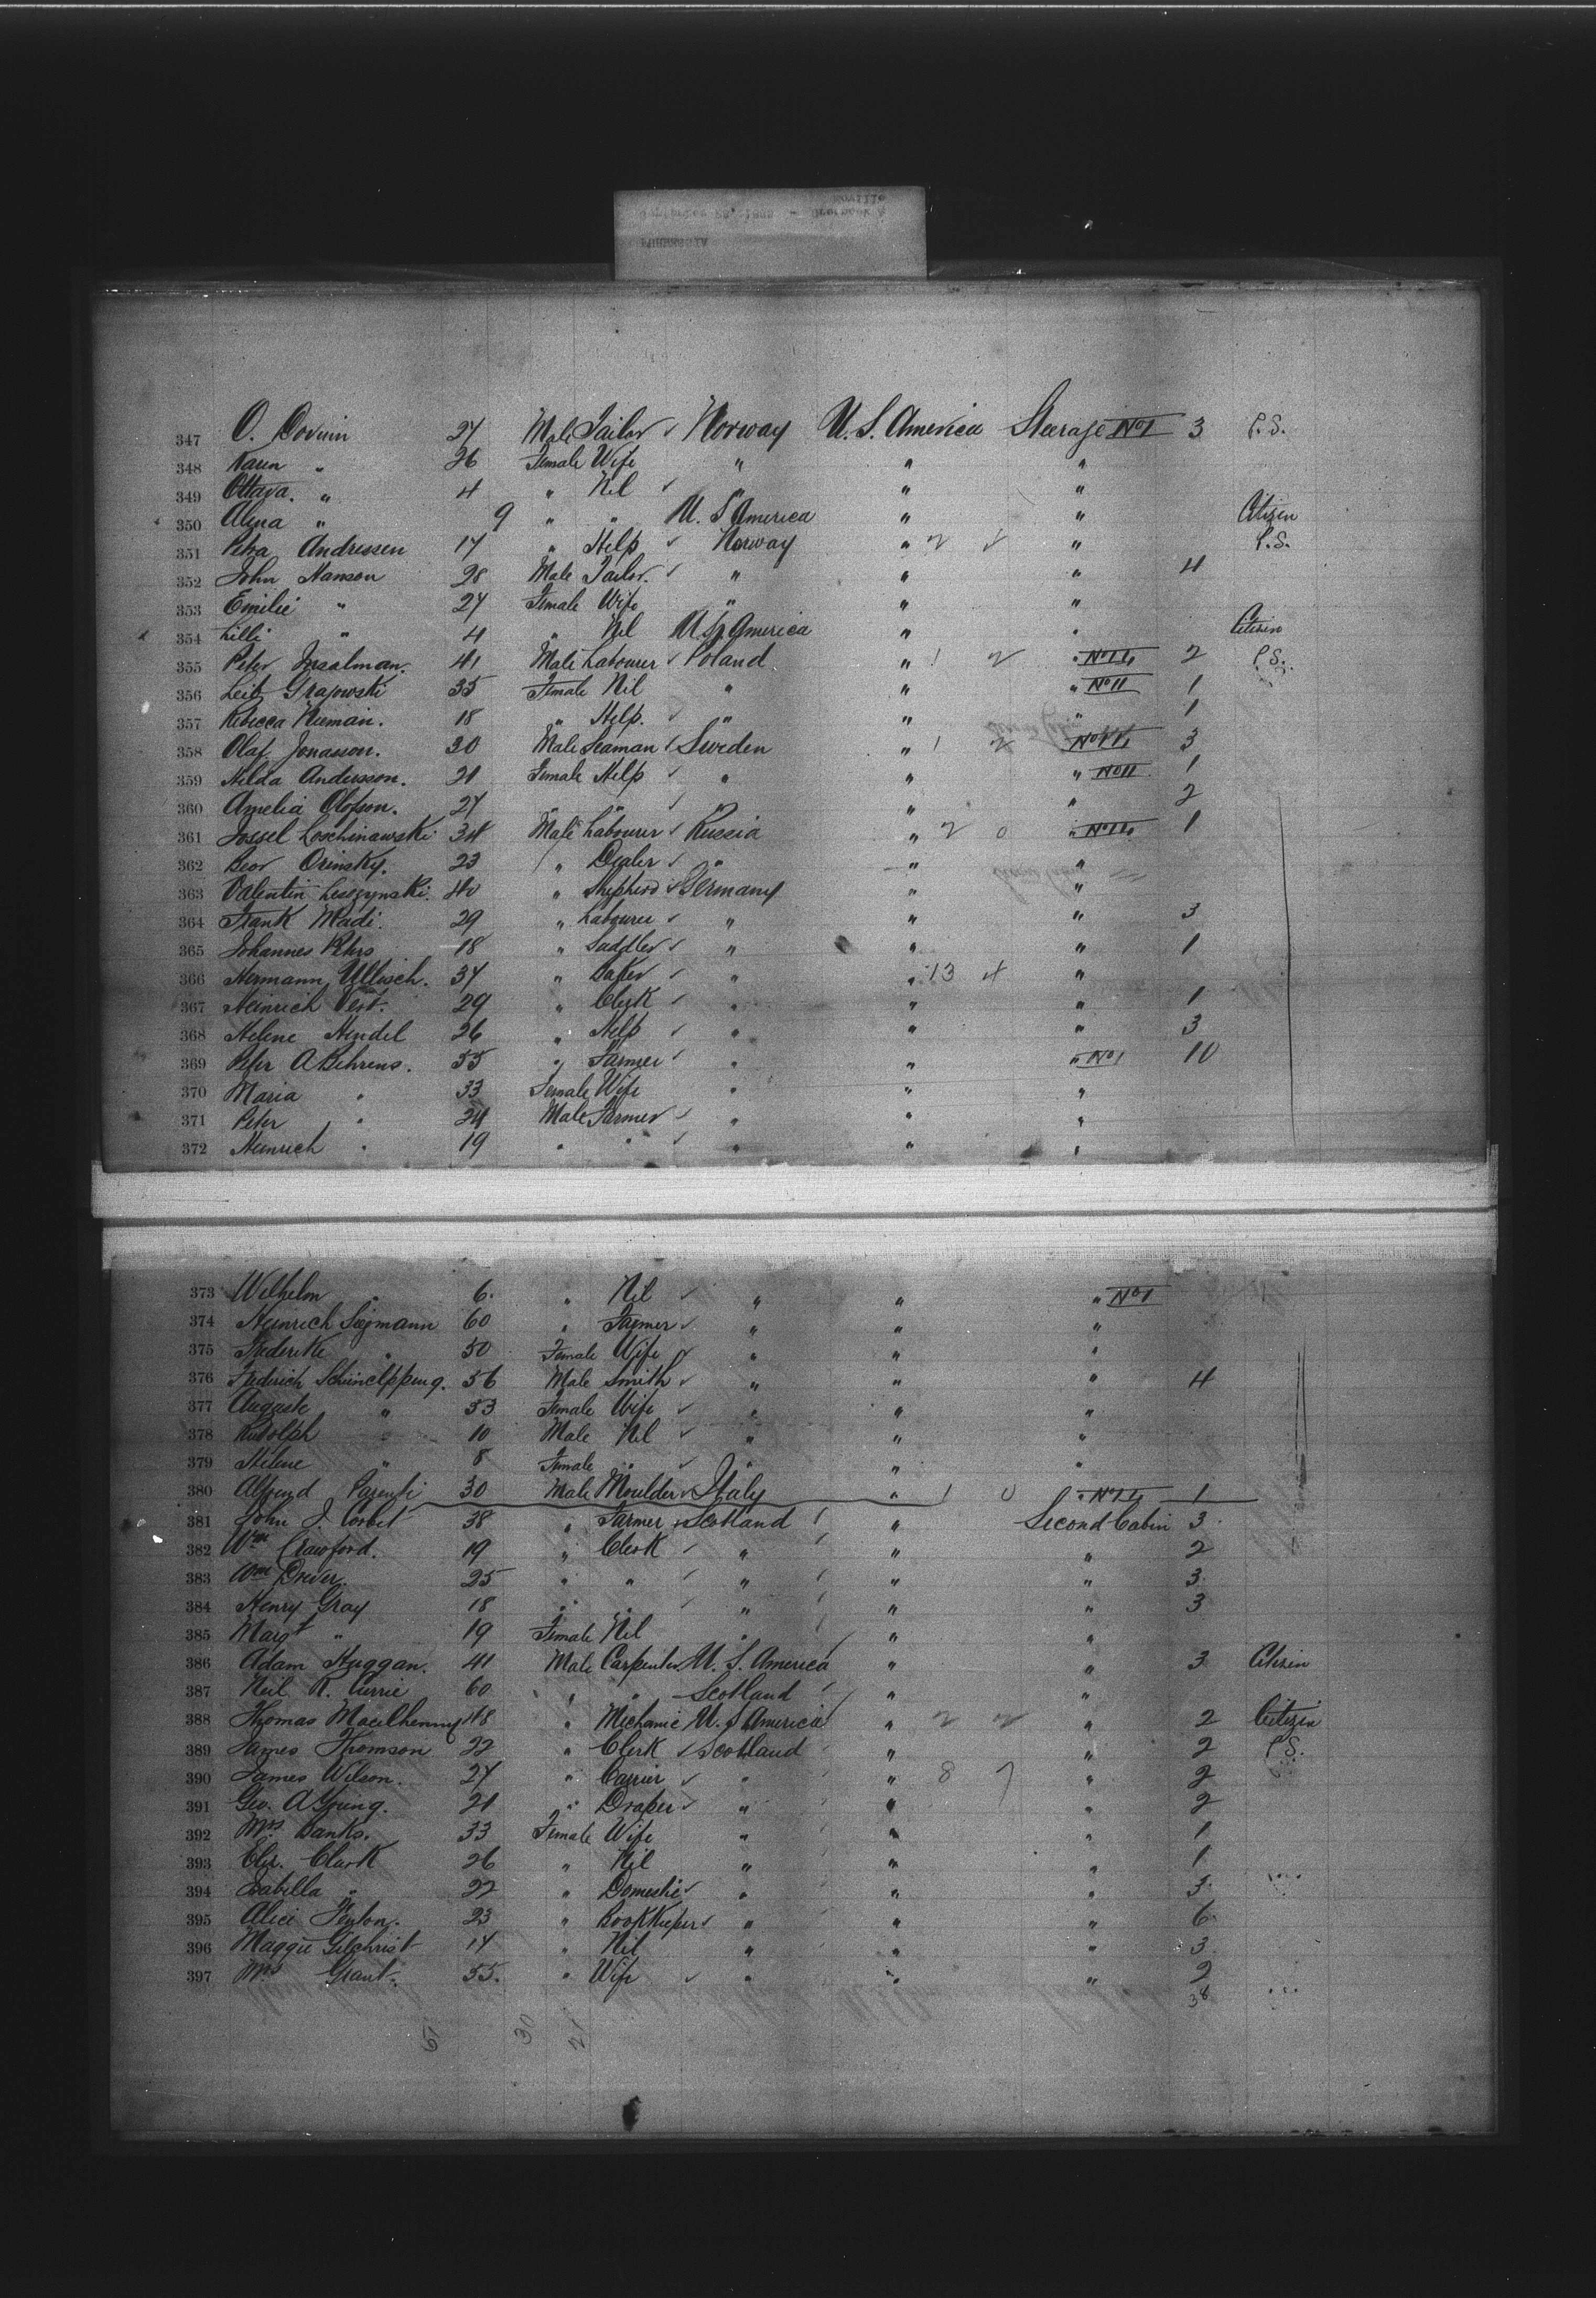 347 O. Dovuin 27 Male Tailor Norway U. S. America Steerage No 1 3 P.S.
348 Karen " 26 Female Wife " " "
349 Ottava. " 4 " Nil " " "
350 Alma " 9 " " U. S America " " Citizen
351 Petra Andressen 17 " Help Norway " 2 " P.S.
352 John Hanson 28 Male Tailor. " " " 4
353 Emilie " 27 Female Wife " " "
354 Lilli " 4 " Nil U. S. America " " Citizen
355 Peter 41 Male Labourer Poland " 1 2 " 2 P.S.
356 Leib Grajowski 35 Female Nil " " " No 11 1
357 Rebecca Neuman. 18 " Help. " " " 1
358 Olaf Jonasson. 30 Male Seaman Sweden " 1 2 3
359 Hilda Andersson. 21 Female Help " " " No 11 1
360 Amelia Olofson. 27 " " " " " 2
361 Jossel Loschinawski 34 Male Labourer Russia " 2 0 " 1
362 Beor Orinsky. 23 " Dealer " " "
363 Valentin Leszzynski. 40 " Shepherd Germany " "
364 Frank Madi. 29 " Labourer " " " 3
365 Johannes Peters 18 " Saddler " " " 1
366 Hermann Ullisch. 37 " Baker " " 13 4 "
367 Heinrich Veit. 29 " Clerk " " " 1
368 Helene Hendel 26 " Help " " " 3
369 Peter A Behrens. 55 " Farmer " " " No 1 10
370 Maria " 33 Female Wife " " "
371 Peter " 24 Male Farmer " " "
372 Heinrich " 19 " " " " "
373 Wilhelm " 6. " Nil " " " No 1
374 Heinrich Siegmann 60 " Farmer " " "
375 Frederike " 50 Female Wife " " "
376 Frederich 56 Male Smith " " " 4
377 Auguste " 53 Female Wife " " "
378 Rudolph " 10 Male Nil " " "
379 Helene " 8 Female " " " "
380 Alfred 30 Male Moulder Italy " 1 0 " 1
381 John J. Corbet 38 " Farmer Scotland " Second Cabin 3
382 Wm Crawford. 19 " Clerk " " " 2
383 Wm Drever. 25 " " " " " 3
384 Henry Gray 18 " " " " " 3
385 Margt " 19 Female Nil " " "
386 Adam Huggan. 41 Male Carpenter U. S. America " " 3 Citizen
387 Neil R. Currie 60 " " Scotland " "
388 Thomas Macilhenny 48 " Mechanic U. S America " 2 2 " 2 Citizen
389 James Thomson 22 " Clerk Scotland " " 2 P.S.
390 James Wilson. 27 " Carrier " " 8 7 " 2
391 Geo. A Young. 21 " Draper " " " 2
392 Mrs Banks. 33 Female Wife " " " 1
393 Eliz. Clark 26 " Nil " " " 1
394 Isabella " 22 " Domestic " " " 3
395 Alice Fenton. 23 " Bookkeeper " " " 6
396 Maggie Gilchrist 14 " Nil " " " 3
397 Mrs Grant. 55. " Wife " " " 2
38
51 30 21